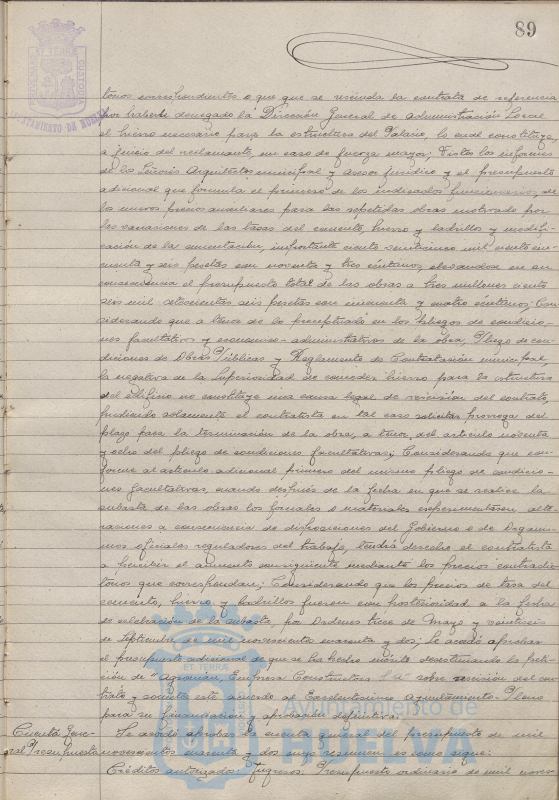 89
torios correspondientes o que que se rescinda la contrata de referencia
por haberle denegado la Dirección General de Administración Local
el hierro necesario para la estructura del Palacio, lo cual constituye,
a juicio del reclamante, un caso de fuerza mayor; Vistos los informes
de los Señores Arquitecto municipal y Asesor jurídico y el presupuesto
adicional que formula el primero de los indicados funcionarios, de
los nuevos precios auxiliares para las repetidas obras motivado por
las variaciones de las tasas del cemento, hierro y ladrillos y modifi-
cación de la cimentación, importante ciento veinticinco mil ciento cin-
cuenta y seis pesetas con noventa y tres céntimos, elevándose en su
consecuencia el presupuesto total de las obras a tres millones ciento
seis mil setecientas seis pesetas con cincuenta y cuatro céntimos; Con-
siderando que a tenor de lo preceptuado en los pliegos de condicio-
nes facultativas y económico-administrativas de la obra, Pliego de con-
diciones de Obras Públicas y Reglamento de Contratación municipal,
la negativa de la Superioridad de conceder hierro para la estructura
del edificio no constituye una causa legal de rescisión del contrato,
pudiendo solamente el contratista en tal caso solicitar prórroga del
plazo para la terminación de la obra, a tenor del artículo noventa
y ocho del pliego de condiciones facultativas; Considerando que con-
forme al artículo adicional primero del mismo pliego de condicio-
nes facultativas, cuando después de la fecha en que se realice la
subasta de las obras los jornales o materiales experimentasen alte-
raciones a consecuencia de disposiciones del Gobierno o de Organis-
mos oficiales reguladores del trabajo, tendrá derecho el contratista
a percibir el aumento consiguiente mediante los precios contradic-
torios que correspondan; Considerando que los precios de tasa del
cemento, hierro y ladrillos fueron con posterioridad a la fecha
de celebración de la subasta, por Ordenes trece de Mayo y veintiseis
de Septiembre de mil novecientos cuarenta y dos; Se acordó aprobar
el presupuesto adicional de que se ha hecho mérito desestimando la peti-
ción de "Agroman, Empresa Constructora S.A." sobre rescisión del con-
trato y someter este acuerdo al Excelentísimo Ayuntamiento Pleno
para su financiación y aprobación definitiva.
Cuenta Gene-
ral Presupuesto
Se acordó aprobar la cuenta general del presupuesto de mil
novecientos cuarenta y dos cuyo resumen es como sigue:
Créditos autorizados: Ingresos. Presupuesto ordinario de mil nove-
Ayuntamiento de
HUELVA